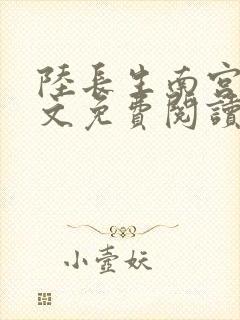 陸長生南宮
文免費閱讀
小壺妖